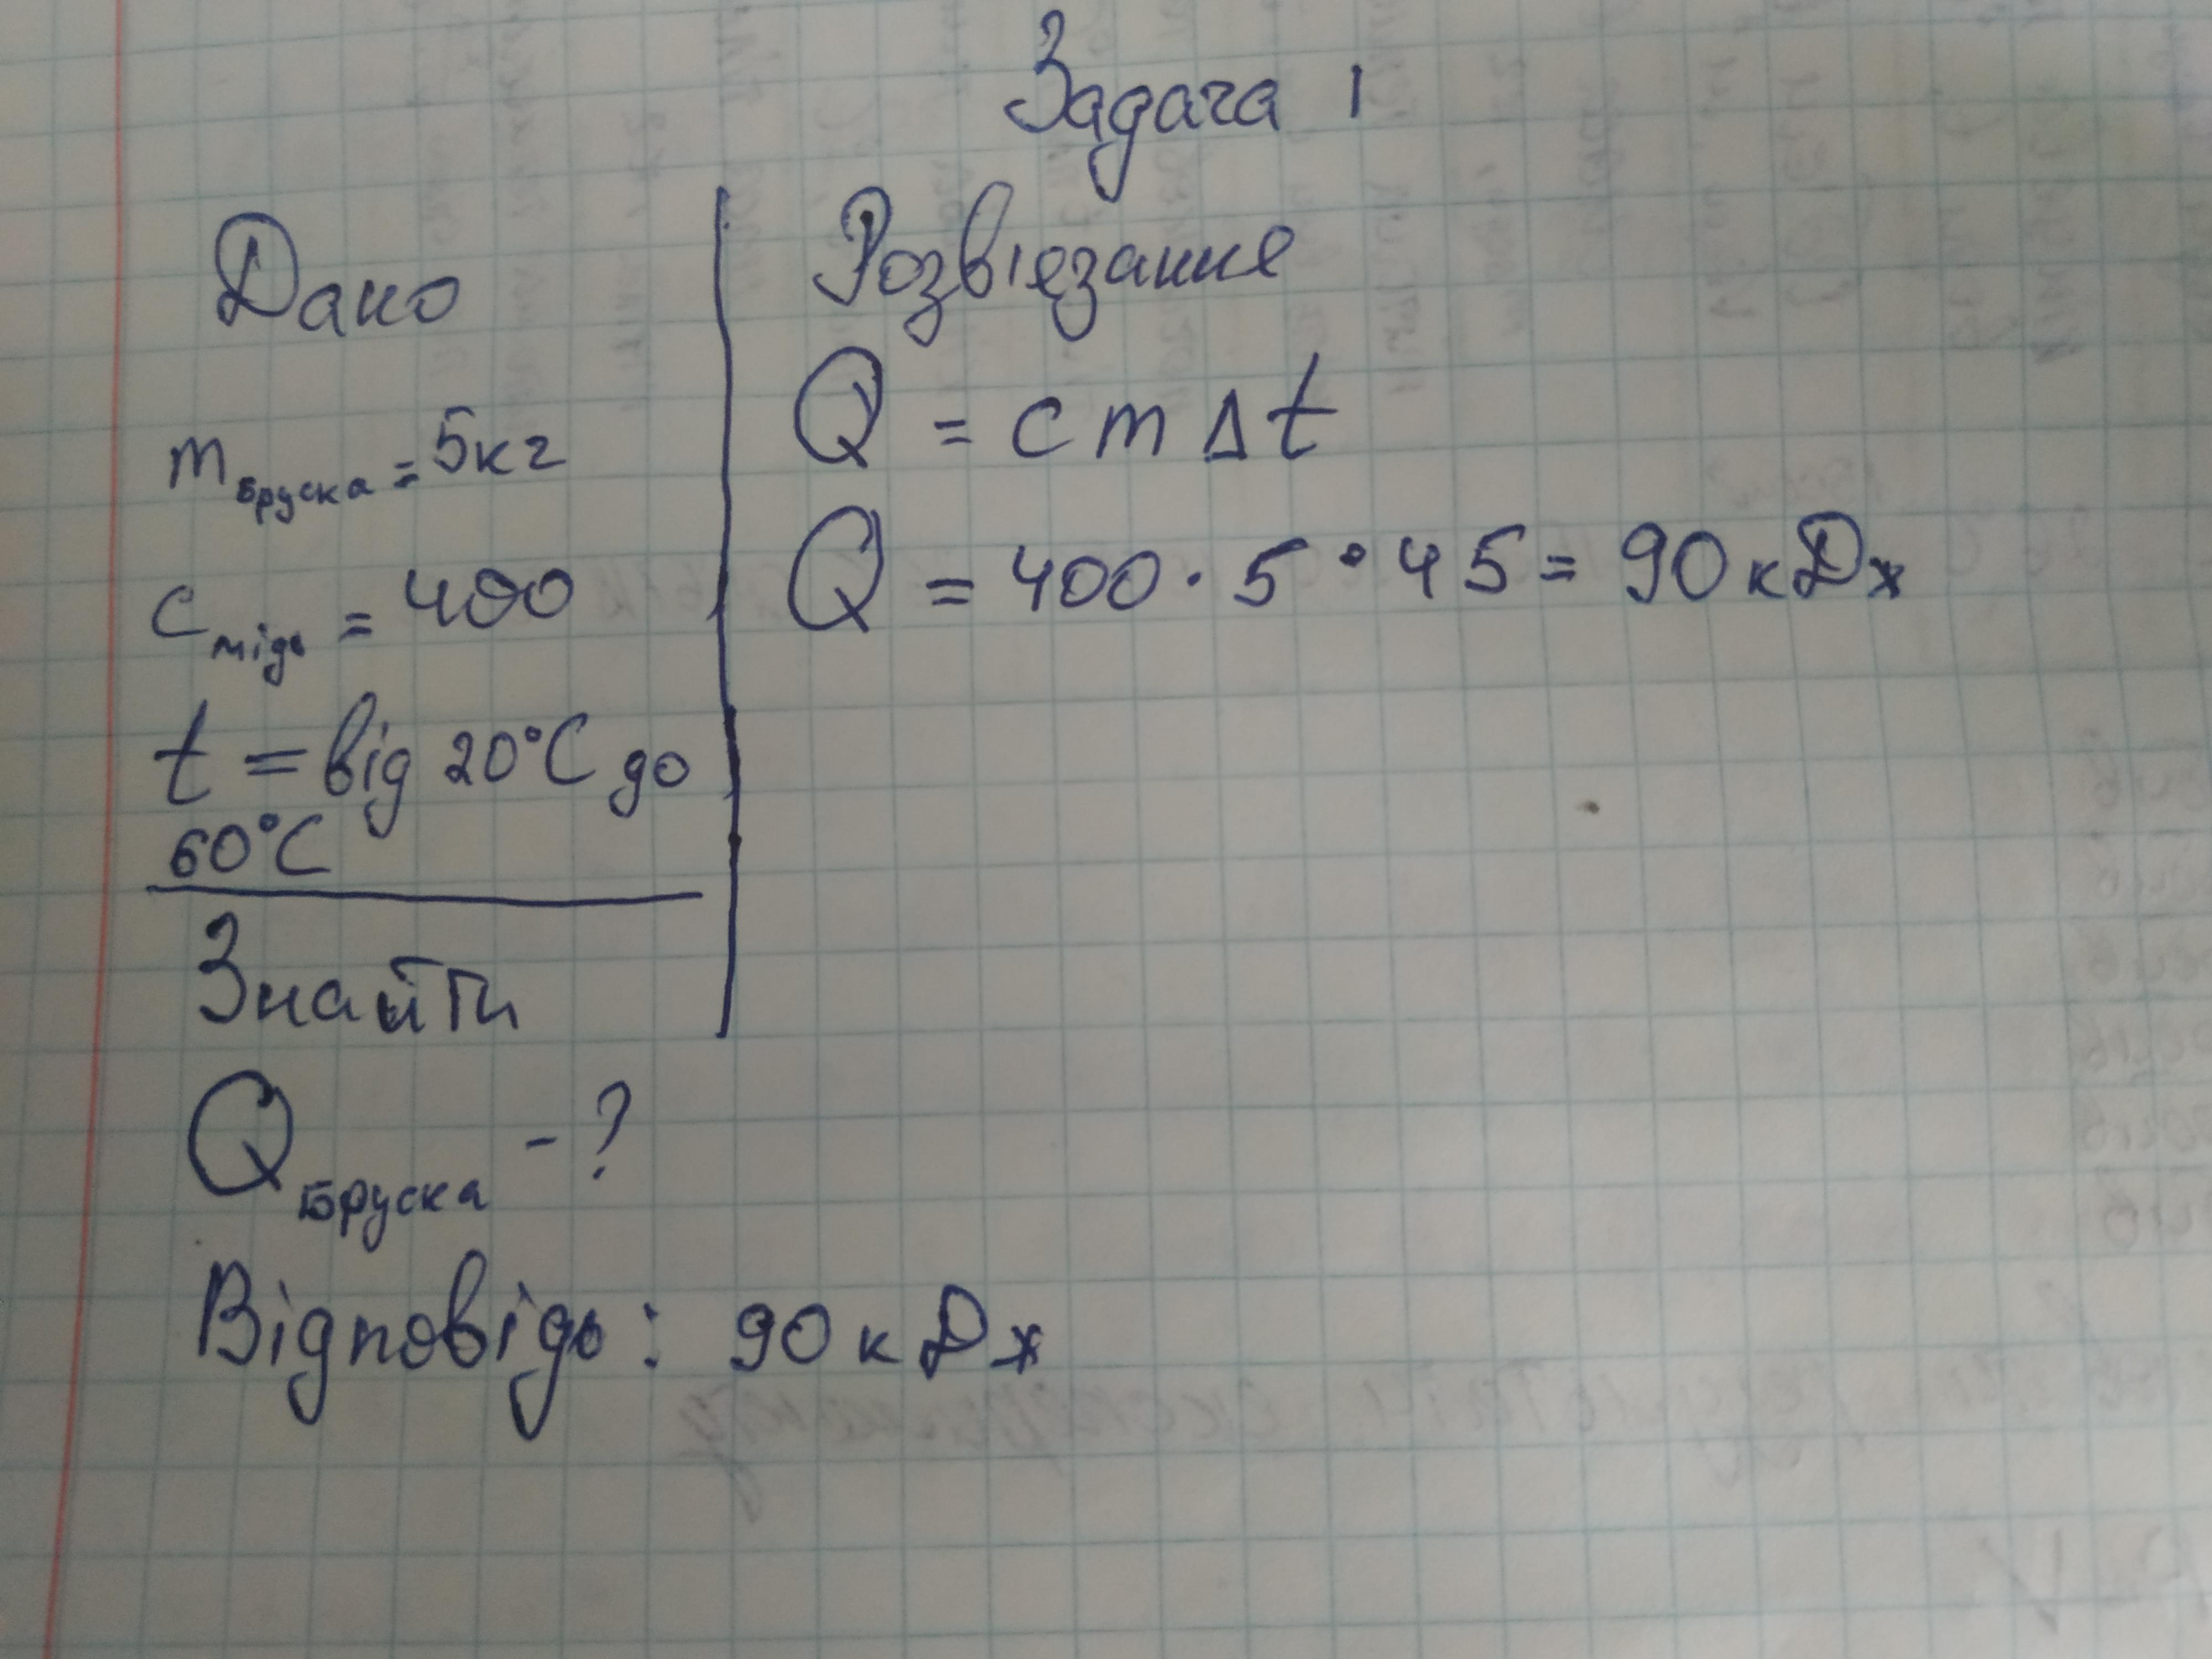 Задача 1
Дано
m бруска = 5кг
c мідь = 400
t = від 20°C до
60°C
Знайти
Q бруска - ?
Розвієзание
Q = c m Δ t
Q = 400 · 5 · 45 = 90 кДж
Відповідь: 90 кДж